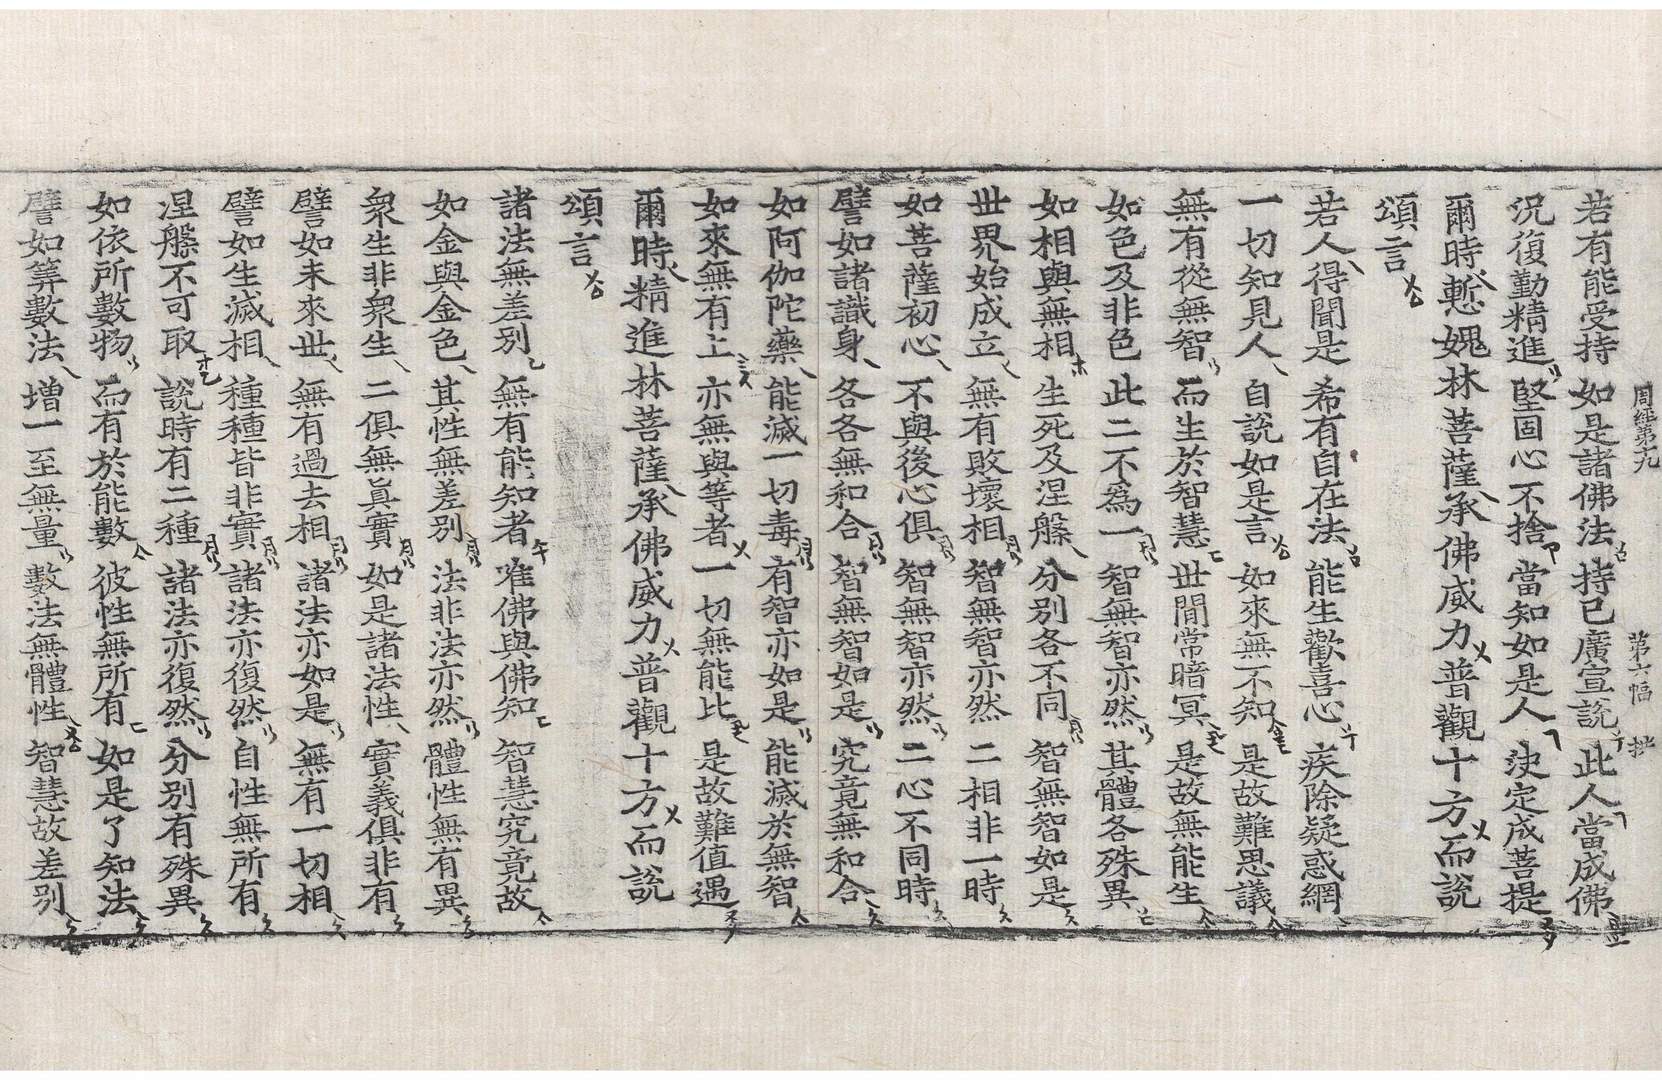 若有能受持 如是諸佛法 持已廣宣說 此人當成佛
周經第十九 第六幅
況復勤精進 堅固心不捨 當知如是人 決定成菩提
爾時慙愧林菩薩承佛威力普觀十方而說
頌言
若人得聞是 希有自在法 能生歡喜心 疾除疑惑網
一切知見人 自說如是言 如來無不知 是故難思議
無有從無智 而生於智慧 世間常暗冥 是故無能生
如色及非色 此二不爲一 智無智亦然 其體各殊異
如相與無相 生死及涅槃 分別各不同 智無智如是
世界始成立 無有敗壞相 智無智亦然 二相非一時
如菩薩初心 不與後心俱 智無智亦然 二心不同時
譬如諸識身 各各無和合 智無智如是 究竟無和合
如阿伽陀藥 能滅一切毒 有智亦如是 能滅於無智
如來無有上 亦無與等者 一切無能比 是故難值遇
爾時精進林菩薩承佛威力普觀十方而說
頌言
諸法無差別 無有能知者 唯佛與佛知 智慧究竟故
如金與金色 其性無差別 法非法亦然 體性無有異
衆生非衆生 二俱無眞實 如是諸法性 實義俱非有
譬如未來世 無有過去相 諸法亦如是 無有一切相
譬如生滅相 種種皆非實 諸法亦復然 自性無所有
涅槃不可取 說時有二種 諸法亦復然 分別有殊異
如依所數物 而有於能數 彼性無所有 如是了知法
譬如筭數法 增一至無量 數法無體性 智慧故差別